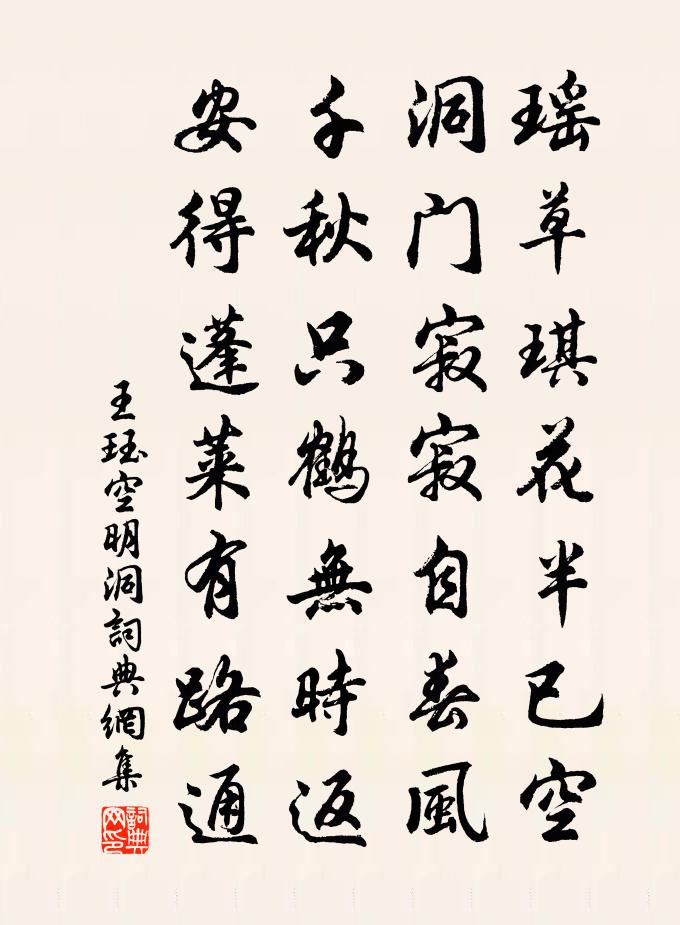 瑶草琪花半已空
洞门寂寂自春風
千秋只鶴無時返
安得蓬莱有路通
王珏空明洞詞典網集
詞典
网印